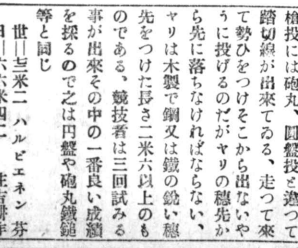 槍投には砲丸、圓盤投と違つて
踏切線が出來てゐる、走つて來
て勢ひをつけそこから出ないや
うに投げるのだがヤリの穂先か
ら先に落ちなければならない、
ヤリは木製で鋼又は鐵の鋭い穂
先をつけた長さ二米六以上のも
のである、競技者は三回試みる
事が出來その中の一番良い成績
を採るので之は円盤や砲丸鐵鎚
等と同じ
世―七三米二 ハルビエネン 芬
日―六六米四二